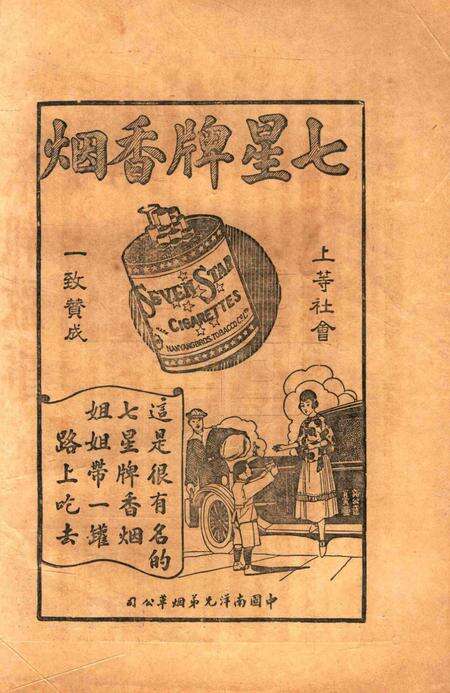 七星牌香烟
上等社會
一致贊成
SEVEN STAR
CIGARETTES
NANYANG BROS. TOBACCO CO. LTD
這是很有名的
七星牌香烟
姐姐帶一罐
路上吃去
中國南洋兄弟烟草公司